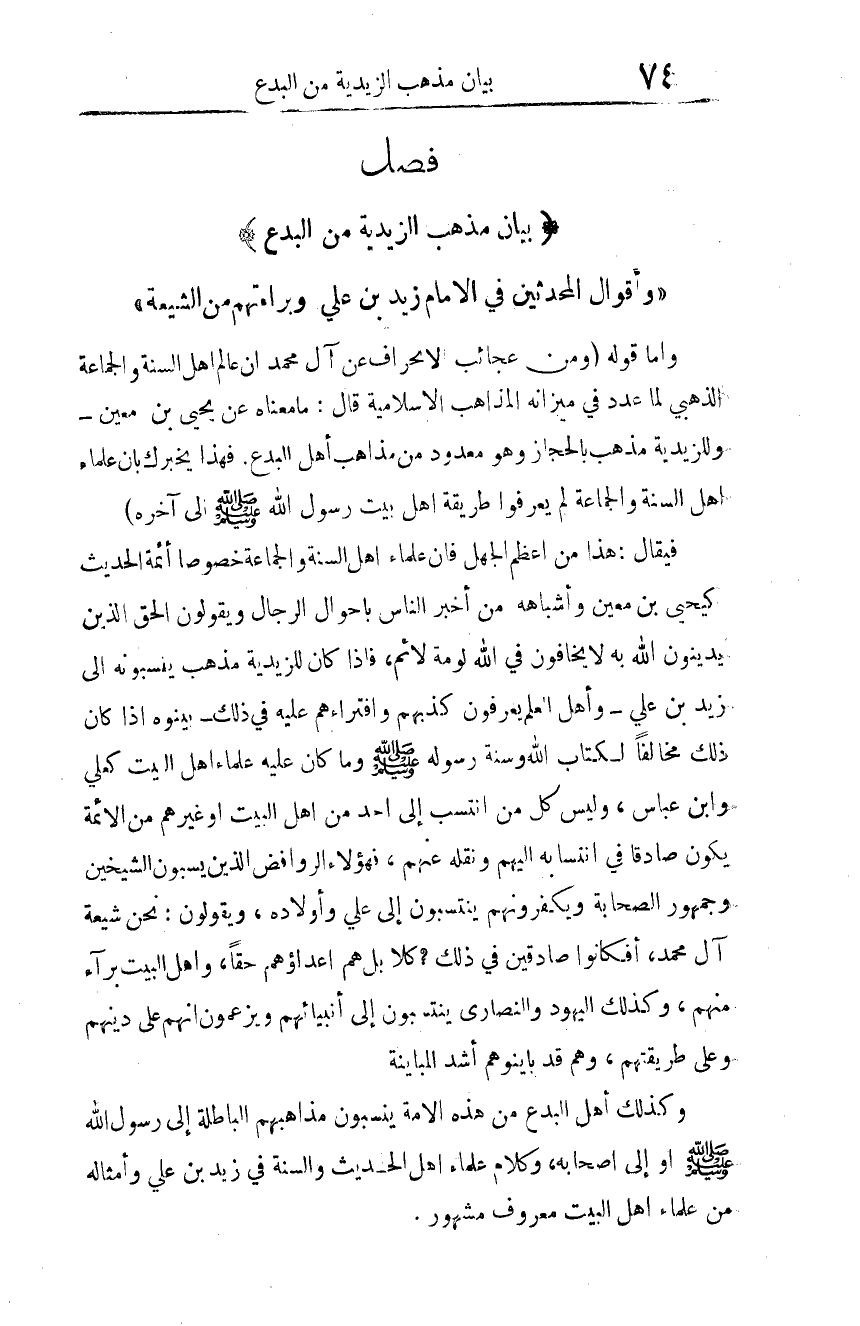 ٧٤
بيان مذهب الزيدية من البدع
فصل
﴿ بيان مذهب الزيدية من البدع ﴾
«وأقوال المحدثين في الامام زيد بن علي وبراءتهم من الشيعة»
واما قوله (ومن عجائب الانحراف عن آل محمد ان عالم اهل السنة والجماعة
الذهبي لما عدد في ميزانه المذاهب الاسلامية قال : مامعناه عن يحيى بن معين ـ
وللزيدية مذهب بالحجاز وهو معدود من مذاهب أهل البدع. فهذا يخبرك بان علماء
اهل السنة والجماعة لم يعرفوا طريقة اهل بيت رسول الله ﷺ الى آخره)
فيقال : هذا من اعظم الجهل فان علماء اهل السنة والجماعة خصوصا أئمة الحديث
كيحيى بن معين وأشباهه من أخبر الناس باحوال الرجال ويقولون الحق الذين
يدينون الله به لا يخافون في الله لومة لائم، فاذا كان للزيدية مذهب ينسبونه الى
زيد بن علي ـ وأهل العلم يعرفون كذبهم وافتراءهم عليه في ذلك ـ بينوه اذا كان
ذلك مخالفاً لـكتاب الله وسنة رسوله ﷺ وما كان عليه علماء اهل البيت كعلي
وابن عباس ، وليس كل من انتسب إلى احد من اهل البيت او غيرهم من الائمة
يكون صادقا في انتسابه اليهم ونقله عنهم ، فهؤلاء الروافض الذين يسبون الشيخين
وجمهور الصحابة ويكفرونهم ينتسبون إلى علي وأولاده ، ويقولون : نحن شيعة
آل محمد، أفكانوا صادقين في ذلك ? كلا بل هم اعداؤهم حقاً، واهل البيت برآء
منهم ، وكذلك اليهود والنصارى ينتسبون إلى أنبيائهم ويزعمون انهم على دينهم
وعلى طريقتهم ، وهم قد باينوهم أشد المباينة
وكذلك أهل البدع من هذه الامة ينسبون مذاهبهم الباطلة إلى رسول الله
ﷺ او إلى اصحابه، وكلام علماء اهل الحـديث والسنة في زيد بن علي وأمثاله
من علماء اهل البيت معروف مشهور .